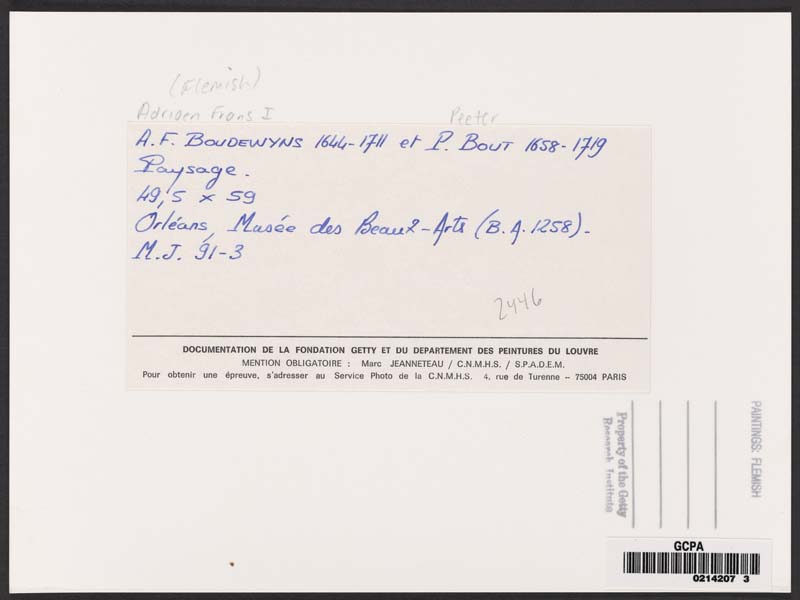 (Flemish)
Adriaen Frans I Peeter
A.F. BOUDEWYNS 1644-1711 et P. BOUT 1658-1719
Paysage.
49,5 x 59
Orléans, Musée des Beaux-Arts (B.A. 1258).
M.J. 91-3
2446
DOCUMENTATION DE LA FONDATION GETTY ET DU DEPARTEMENT DES PEINTURES DU LOUVRE
MENTION OBLIGATOIRE : Marc JEANNETEAU / C.N.M.H.S. / S.P.A.D.E.M.
Pour obtenir une épreuve, s'adresser au Service Photo de la C.N.M.H.S. 4, rue de Turenne – 75004 PARIS
PAINTINGS: FLEMISH
Property of the Getty
Research Institute
GCPA
0214207 3